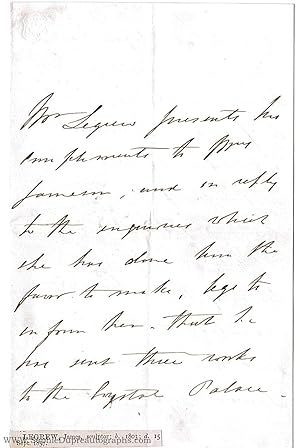 Mr Legrew presents his
compliments to Mrs
Jameson, and in reply
to the enquiries which
she has done him the
favor to make, begs to
inform her that he
has sent three works
to the Crystal Palace
LEGREW, James, sculptor; b. 1803; d. 15
Sept. 1857
www.SophieDupreAutographs.com